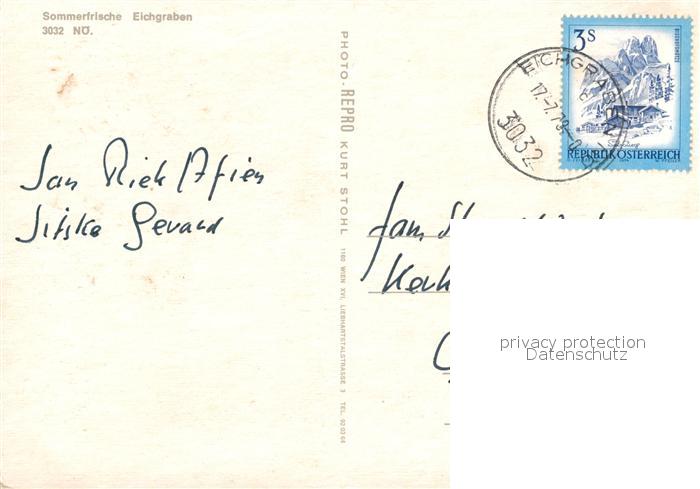 Sommerfrische Eichgraben
3032 NÖ.
Jan Riek/Afien
Jitske Gerard
PHOTO-REPRO KURT STOHL 1160 WIEN XVI, LIEBHARTSTALSTRASSE 3 TEL. 92 03 64
EICHGRABEN
17.-7.78-
3032
3S
BISCHOFSMÜTZE
Salzburg
REPUBLIK ÖSTERREICH
fam.
Kerk
privacy protection
Datenschutz